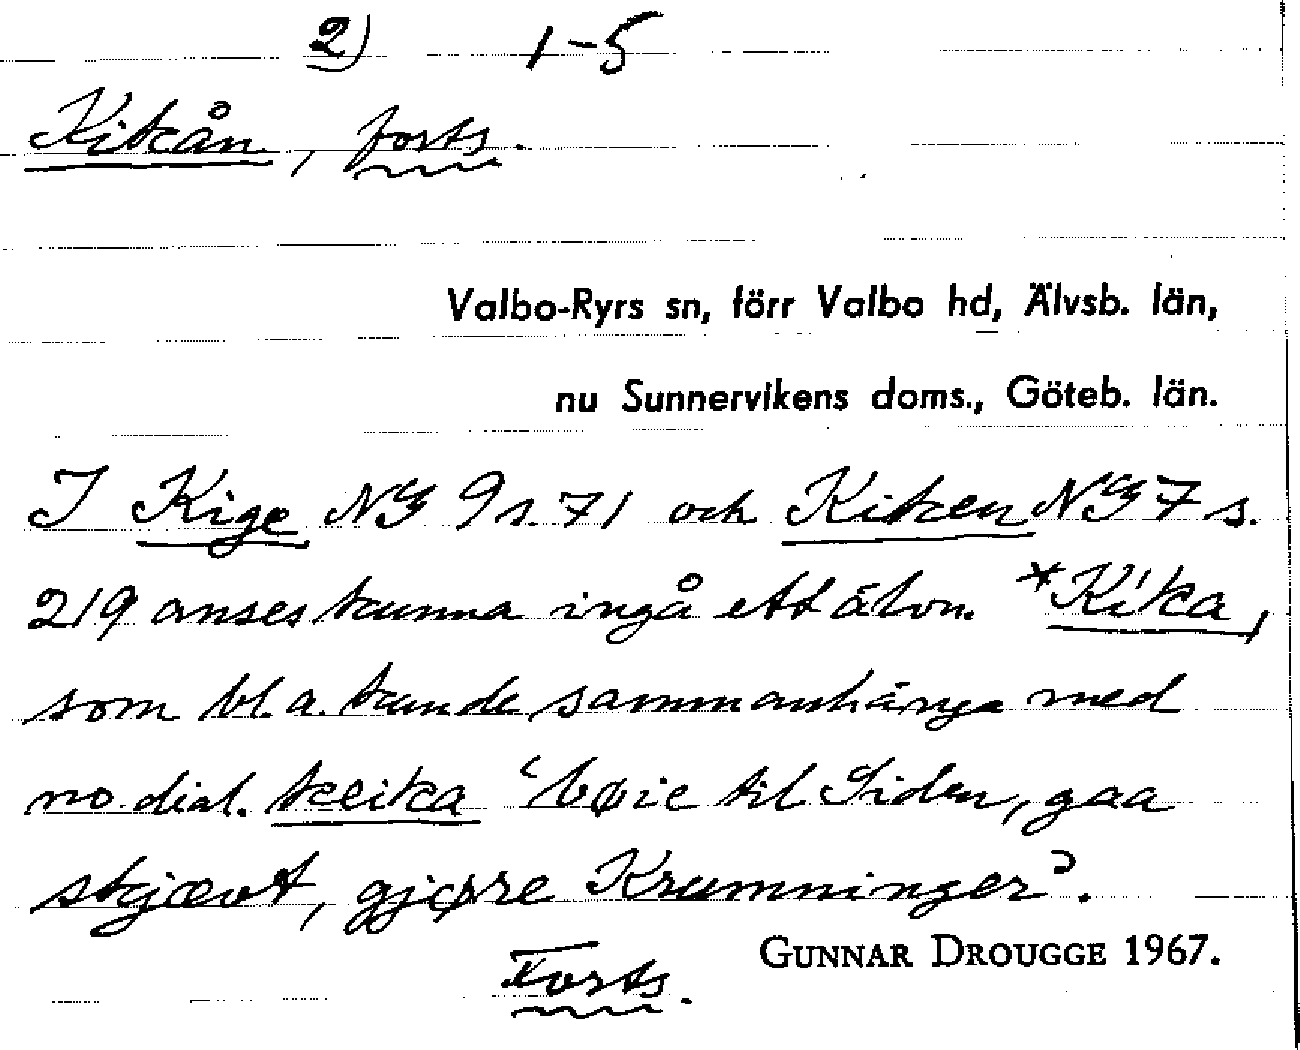 2) 1-5
Kikån, forts.
Valbo-Ryrs sn, förr Valbo hd, Älvsb. län,
nu Sunnervikens doms., Göteb. län.
I Kige NG 9 s. 71 och Kiken NG 7 s.
219 anses kunna ingå ett älvn. *Kíka,
som bl.a. kunde sammanhänga med
no. dial. keika ‘bøie til Siden, gaa
skjævt, gjøre Krumninger’.
Forts.
GUNNAR DROUGGE 1967.